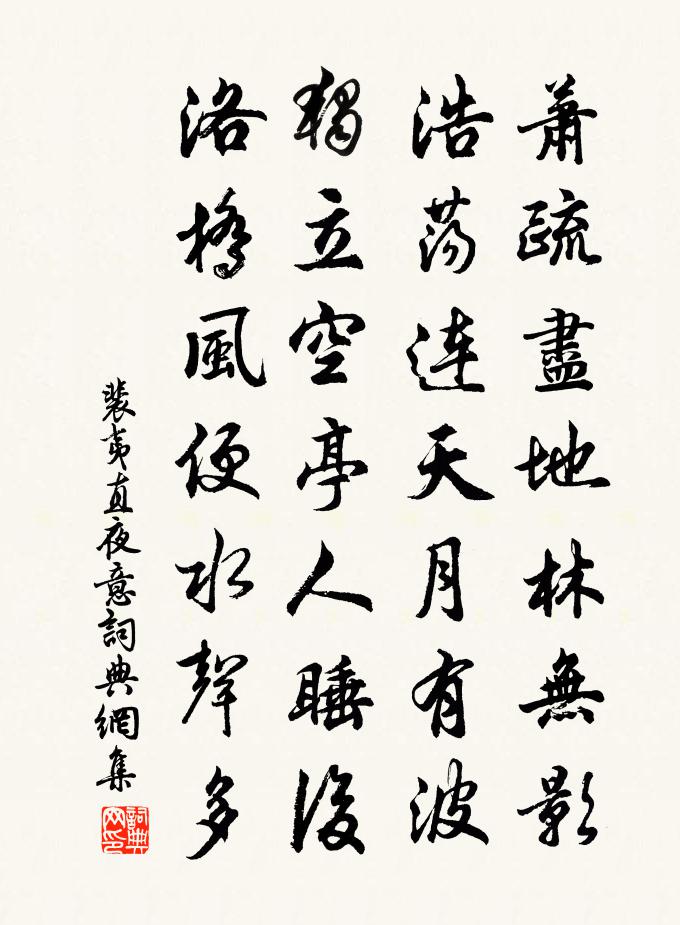 蕭疏盡地林無影
浩蕩連天月有波
獨立空亭人睡後
洛橋風便水聲多
裴夷直夜意詞典網集
詞典網印